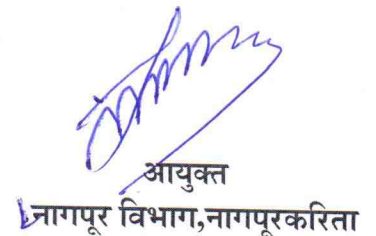 आयुक्त
नागपूर विभाग,नागपूरकरिता